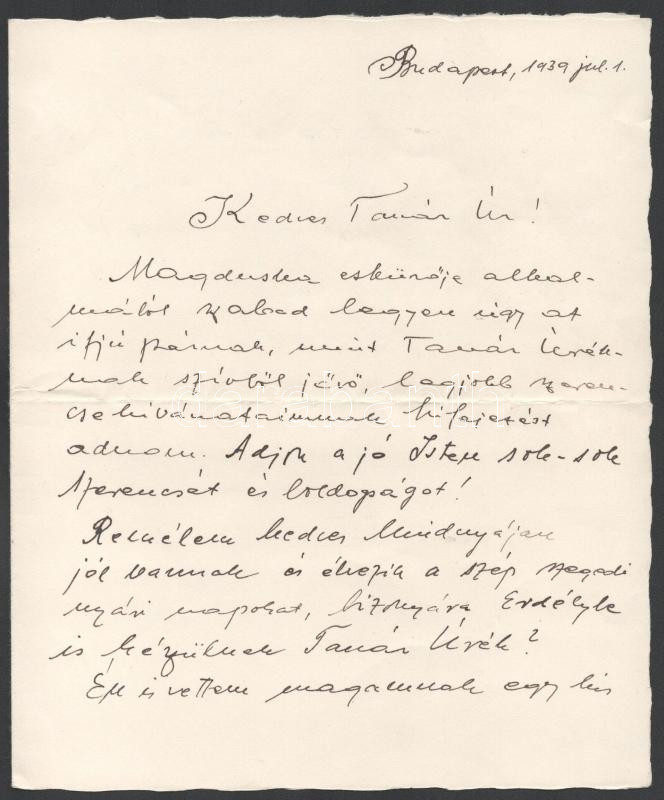 Budapest, 1939 jul. 1.
Kedves Tanár Úr!
Magduska esküvője alkal-
mából szabad legyen úgy az
ifjú párnak, mint Tanár Úrék-
nak szívből jövő, legjobb szeren-
csekivánataimnak kifejezést
adnom. Adjon a jó Isten sok-sok
szerencsét és boldogságot!
Remélem kedves Mindnyájan
jól vannak és élvezik a szép szegedi
nyári napokat, bizonyára Erdélybe
is készülnek Tanár Úrék?
Én is vettem magamnak egy kis